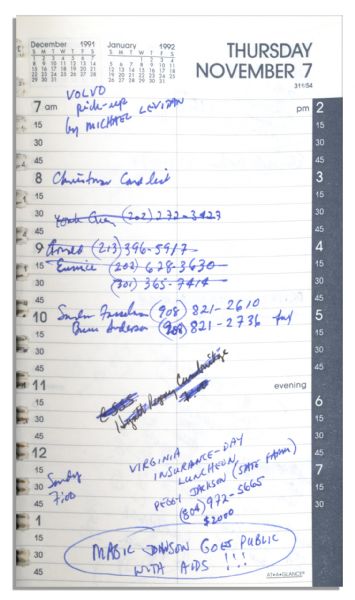 December 1991
S M T W T F S
1 2 3 4 5 6 7
8 9 10 11 12 13 14
15 16 17 18 19 20 21
22 23 24 25 26 27 28
29 30 31
January 1992
S M T W T F S
1 2 3 4
5 6 7 8 9 10 11
12 13 14 15 16 17 18
19 20 21 22 23 24 25
26 27 28 29 30 31
THURSDAY
NOVEMBER 7
311/54
VOLVO
pick-up
by MICHAEL LEVITAN
7 am
pm 2
15
15
30
30
45
45
8 Christmas Card list
3
15
15
30 (202) 272-3427
30
45
45
9 Arnold (213) 396-5917
4
15 Eunice (202) 628-3630
15
30 (301) 365-7414
30
45
45
10 (908) 821-2610
5
Anderson (908) 821-2736 fax
15
15
30
30
45
45
11 Hyatt Regency Cambridge
evening
15
6
30
15
45
30
12
45
VIRGINIA
INSURANCE-DAY
LUNCHEON
PEGGY JACKSON (STATE FARM)
(804) 972-5665
$2000
15 Sandy
7
30 7:00
15
45
30
1
45
15
30 MAGIC JOHNSON GOES PUBLIC
WITH AIDS !!!
45
AT-A-GLANCE®